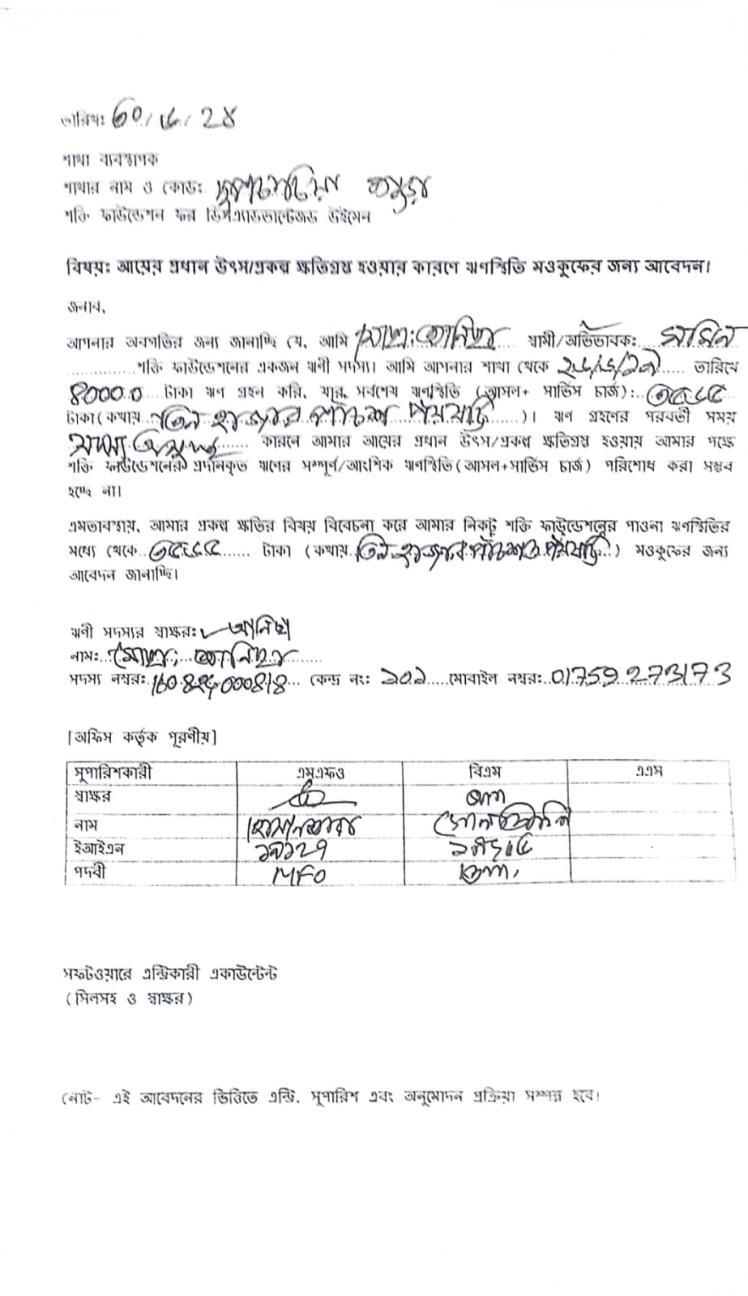 তারিখঃ
শাখা ব্যবস্থাপক
শাখার নাম ও কোডঃ দুপচাচিয়া বগুড়া
শক্তি ফাউন্ডেশন ফর ডিসএ্যাডভান্টেজড উইমেন
বিষয়ঃ আয়ের প্রধান উৎস/প্রকল্প ক্ষতিগ্রস্ত হওয়ার কারণে ঋণস্থিতি মওকুফের জন্য আবেদন।
জনাব,
আপনার অবগতির জন্য জানাচ্ছি যে, আমি মোছাঃ স্বামী/অভিভাবকঃ
শক্তি ফাউন্ডেশনের একজন ঋণী সদস্য। আমি আপনার শাখা থেকে তারিখে
40000 টাকা ঋণ গ্রহন করি, যার, সর্বশেষ ঋণস্থিতি (আসল+ সার্ভিস চার্জ): ৩৫৬৫
টাকা (কথায় তিন হাজার পাঁচশত পঁয়ষট্টি )। ঋণ গ্রহণের পরবর্তী সময়
সদস্য অসুস্থ কারনে আমার আয়ের প্রধান উৎস/প্রকল্প ক্ষতিগ্রস্ত হওয়ায় আমার পক্ষে
শক্তি ফাউন্ডেশনের প্রদানকৃত ঋণের সম্পূর্ণ/আংশিক ঋণস্থিতি (আসল+সার্ভিস চার্জ) পরিশোধ করা সম্ভব
হচ্ছে না।
এমতাবস্থায়, আমার প্রকল্প ক্ষতির বিষয় বিবেচনা করে আমার নিকট শক্তি ফাউন্ডেশনের পাওনা ঋণস্থিতির
মধ্যে থেকে ৩৫৬৫ টাকা (কথায় তিন হাজার পাঁচশত পঁয়ষট্টি) মওকুফের জন্য
আবেদন জানাচ্ছি।
ঋণী সদস্যের স্বাক্ষরঃ
নামঃ মোছাঃ
সদস্য নম্বরঃ কেন্দ্র নং: ১০১ মোবাইল নম্বরঃ 01759273173
[অফিস কর্তৃক পূরণীয়]
সুপারিশকারী এমএফও বিএম এএস
স্বাক্ষর
নাম
ইআইএন
পদবী MFO BM
সফটওয়ারে এন্ট্রিকারী একাউন্টেন্ট
(সিলসহ ও স্বাক্ষর)
নোট- এই আবেদনের ভিত্তিতে এন্ট্রি, সুপারিশ এবং অনুমোদন প্রক্রিয়া সম্পন্ন হবে।